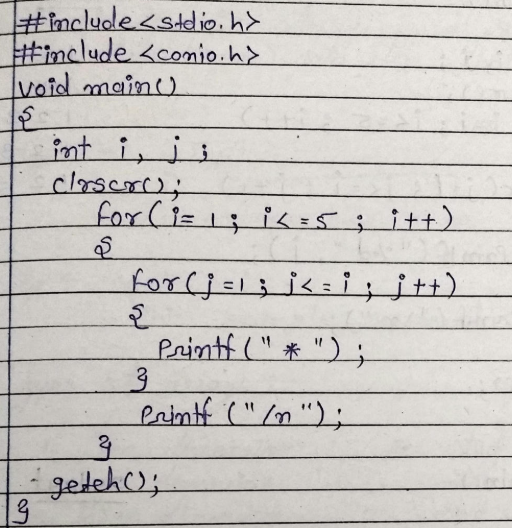 #include<stdio.h>
#include <conio.h>
void main()
{
int i, j ;
clrscr();
for(i= 1 ; i<=5 ; i++)
{
for(j=1 ; j<=i ; j++)
{
printf(" * ") ;
}
printf ("/n");
}
getch();
}